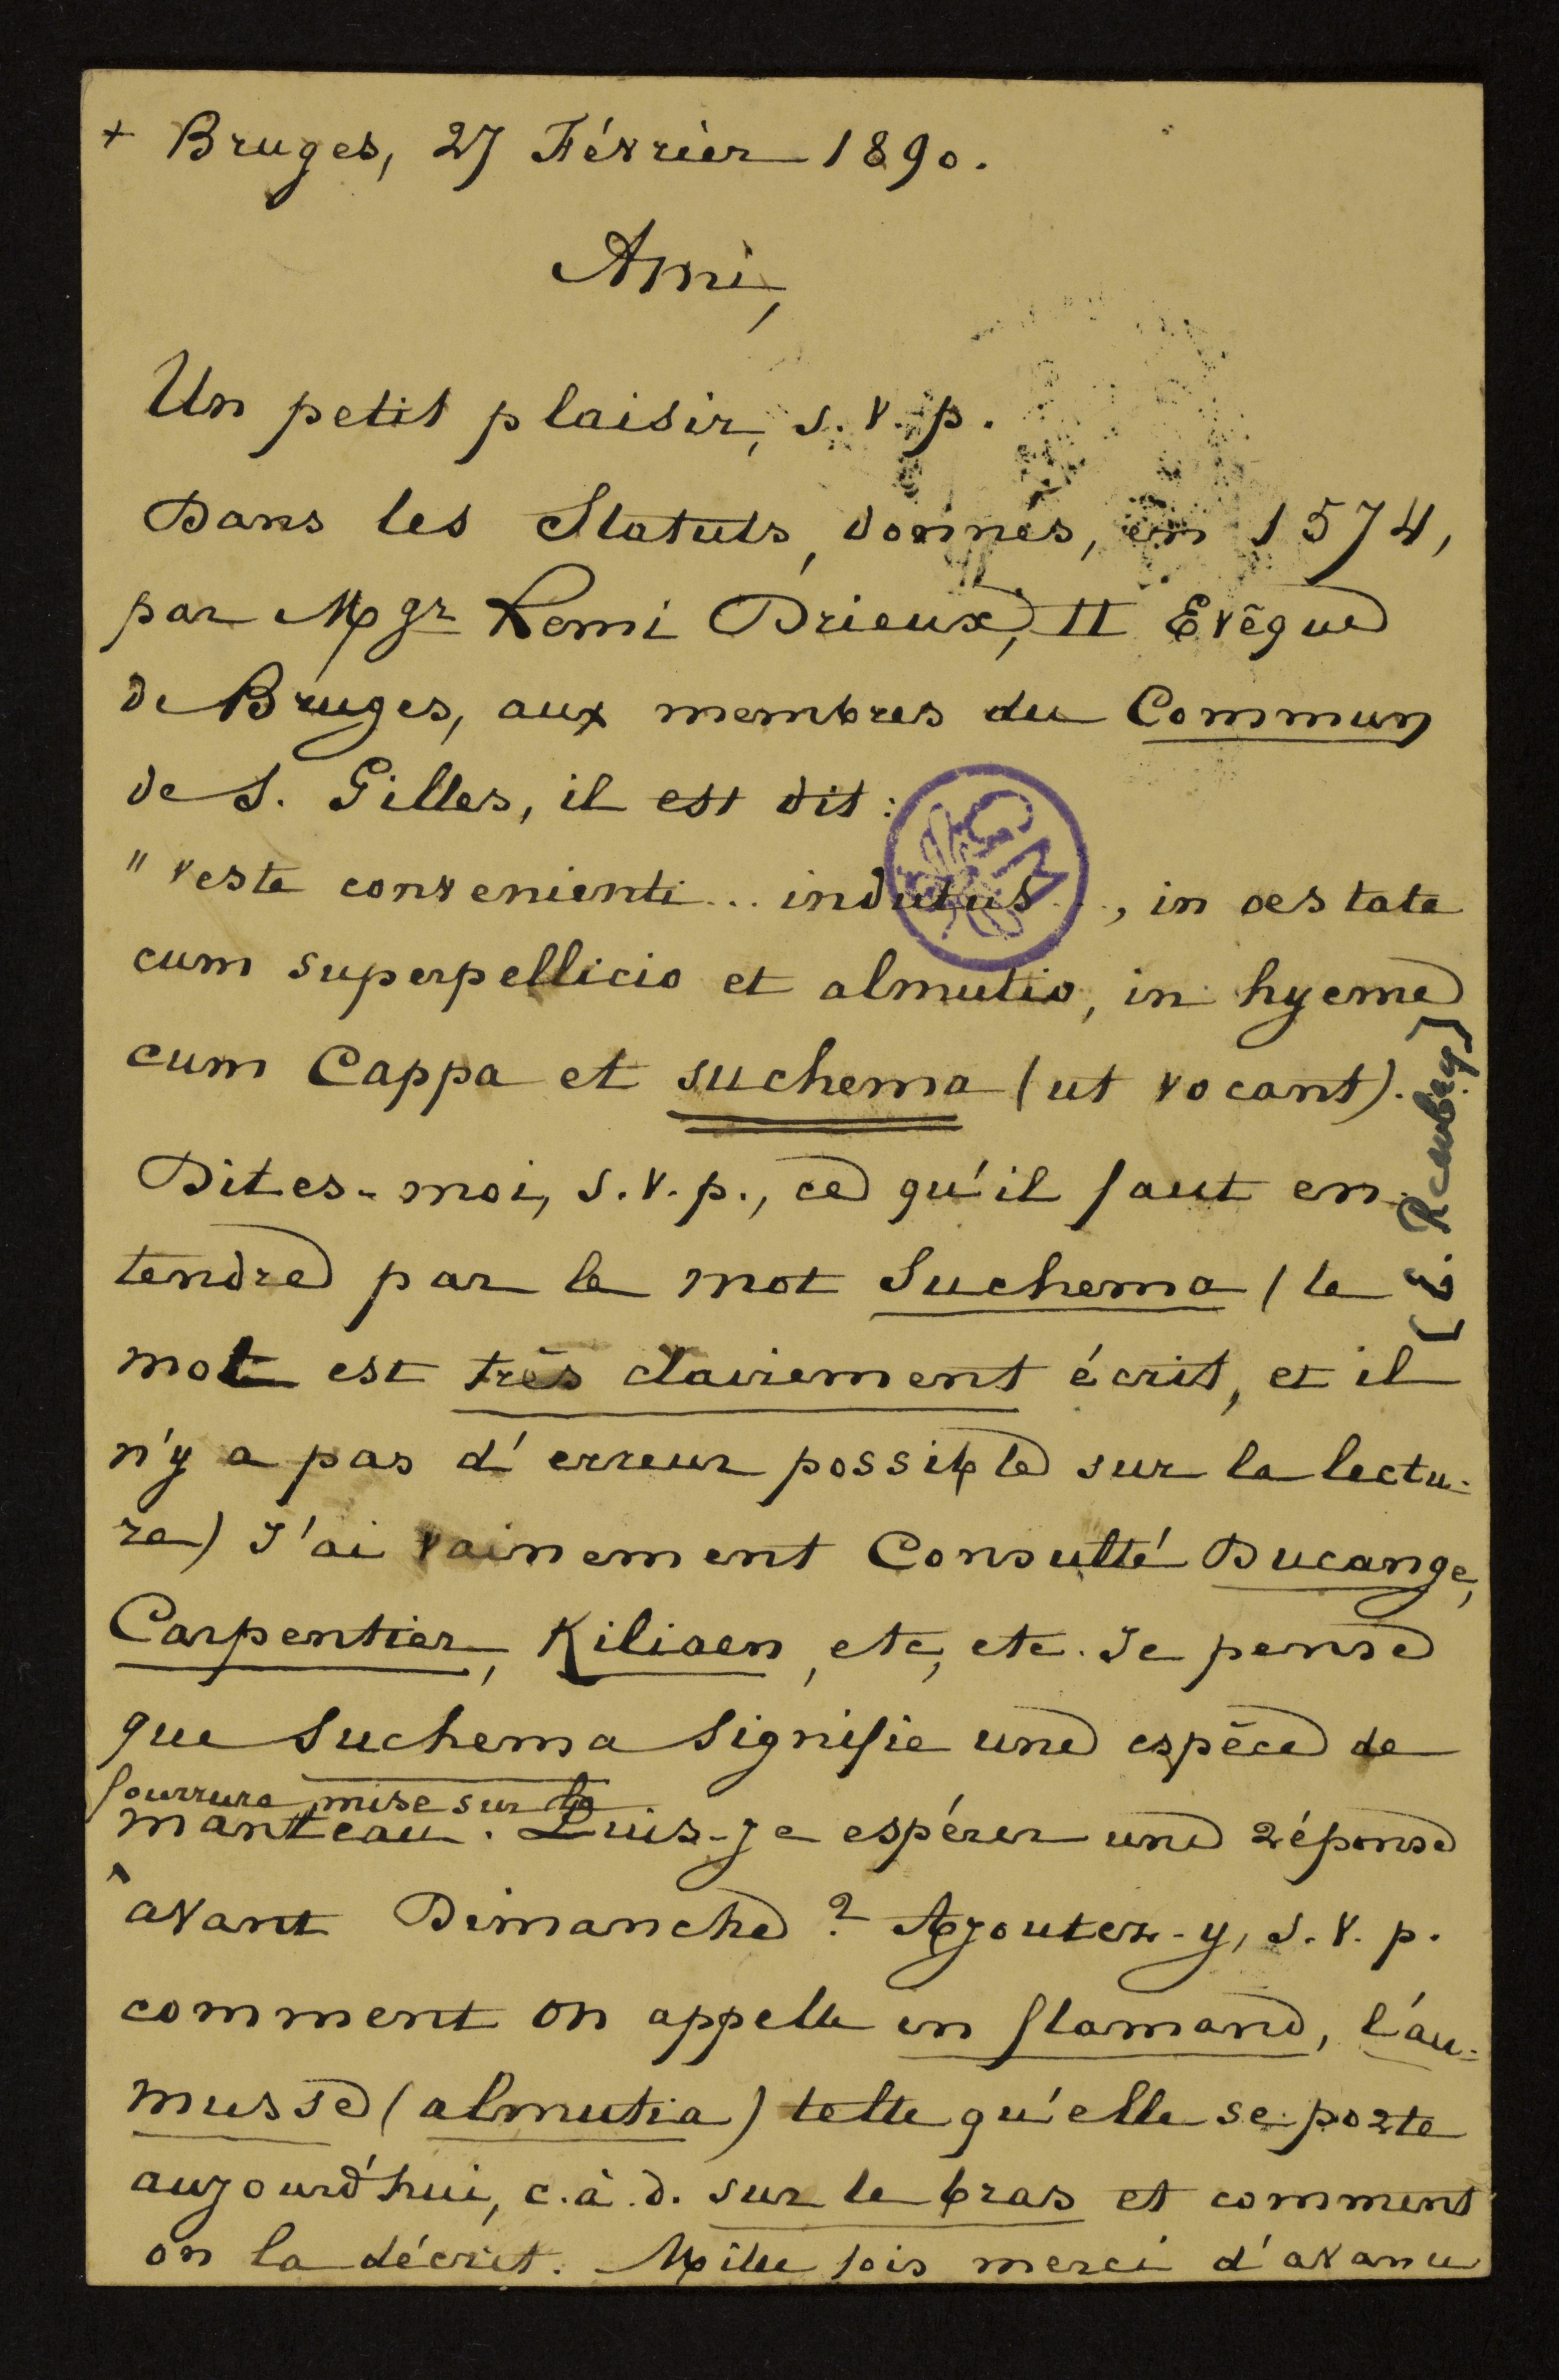 + Bruges, 27 Février 1890.
Ami,
Un petit plaisir, s.v.p.
Dans les Statuts, donnés, en 1574,
par Mgr Remi Drieux, II Evêque
de Bruges, aux membres du Commun
de S. Gilles, il est dit:
"veste convenienti... indutus..., in oestate
cum superpellicio et almutio, in hyeme
cum Cappa et suchema (ut vocant).
Dites-moi, s.v.p., ce qu'il faut en-
tendre par le mot Suchema (le
mot est très clairement écrit, et il
n'y a pas d'erreur possible sur la lectu-
re) J'ai vainement Consulté Ducange,
Carpentier, Kiliaen, etc, etc. Je pense
que Suchema signifie une espèce de
fourrure mise sur le
manteau. Puis-je espérer une réponse
avant Dimanche? Ajoutez-y, s.v.p.
comment on appelle en flamand, l'au-
musse (almutia) telle qu'elle se porte
aujourd'hui, c.à.d. sur le bras et comment
on la décrit. Mille fois merci d'avance
[E. Rembry]
GM